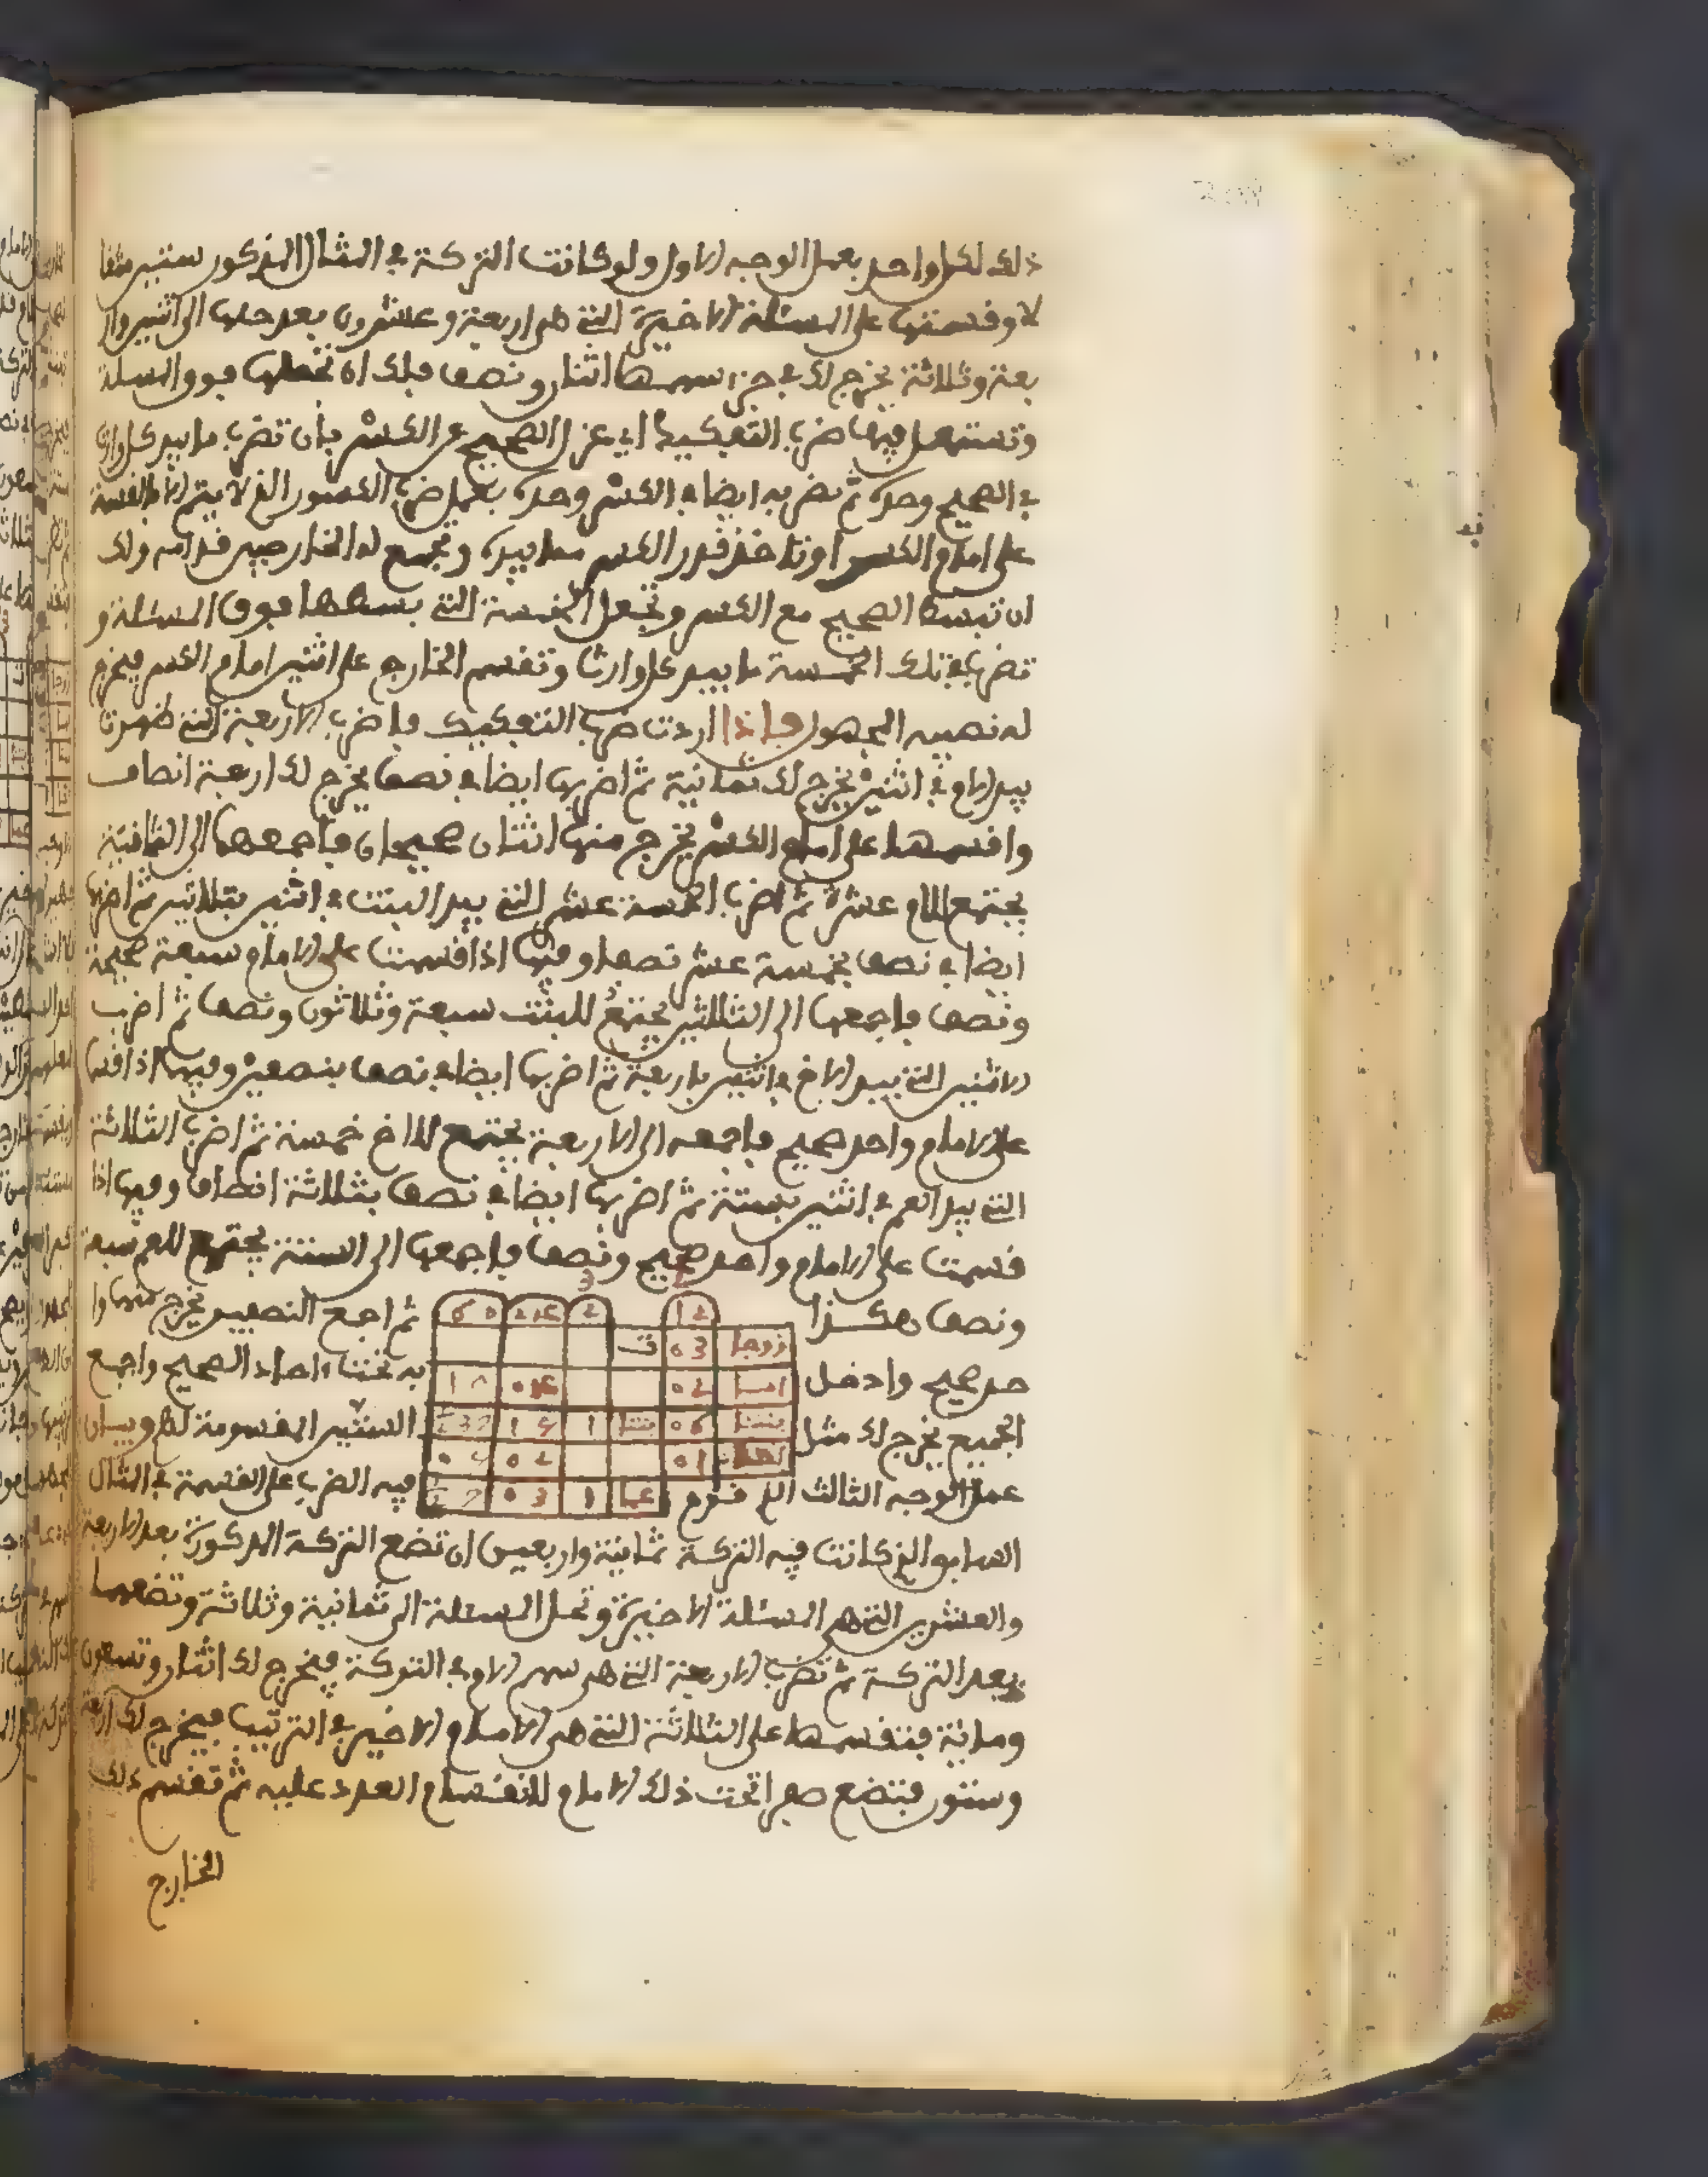 ذلك لكل واحد بعمل الوجه الاول ولو كانت التركة في المثال المذكور ستين مثقا
لا وقسمتها على المسئلة الاخيرة التي هي اربعة وعشرون بعد حلها الى اثنين وار
بعة وثلاثة يخرج لك في جزء سهمها اثنان ونصف فلك ان تجعلها فوق المسئلة
وتستعمل فيها ضرب التفكيك اي عزل الصحيح عن الكسر بان تضرب ما بيد كل وارث
في الصحيح وحده ثم تضربه ايضا في الكسر وحده بعمل ضرب الكسور الذي لا يتم الا بالقسمة
على امام الكسر او تاخذ قدر الكسر مما بيده وتجمع له الخارجين قدامه ولك
ان تبسط الصحيح مع الكسر وتجعل الخمسة التي بسطها فوق المسئلة و
تضرب في تلك الخمسة ما بيد كل وارث وتقسم الخارج على اثنين امام الكسر فيخرج
له نصيبه المجهول فاذا اردت ضرب التفكيك فاضرب الاربعة التي ظهرت
بيد الام في اثنين يخرج لك ثمانية ثم اضربها ايضا في نصف يخرج لك اربعة انصاف
واقسمها على امام الكسر يخرج منها اثنان صحيحان فاجمعهما الى الثمانية
يجتمع للام عشرة ثم اضرب الخمسة عشر التي بيد البنت في اثنين بثلاثين ثم اضربها
ايضا في نصف بخمسة عشر نصفا وفيها اذا قسمت على الامام سبعة صحيحة
ونصف فاجمعها الى الثلاثين يجتمع للبنت سبعة وثلاثون ونصف ثم اضرب
الاثنين التي بيد الاخ في اثنين باربعة ثم اضربها ايضا في نصف بنصفين وفيها اذا قسما
على الامام واحد صحيح فاجمعه الى الاربعة يجتمع للاخ خمسة ثم اضرب الثلاثة
التي بيد العم في اثنين بستة ثم اضربها ايضا في نصف بثلاثة انصاف وفيها اذا
قسمت على الامام واحد صحيح ونصف فاجمعها الى الستة يجتمع للعم سبعة
ونصف هكذا ثم اجمع النصفين يخرج منهما وا
حد صحيح وادخل به تحت احاد الصحيح واجمع
الجميع يخرج لك مثل الستين المقسومة لهم وبيان
عمل الوجه الثالث الذي قدم فيه الضرب على القسمة في المثال
السابق الذي كانت فيه التركة ثمانية واربعين ان تضع التركة المذكورة بعد الاربعة
والعشرين التي هي المسئلة الاخيرة وتحل المسئلة الى ثمانية وثلاثة وتضعهما
بعد التركة ثم تضرب الاربعة التي هي سهم الام في التركة فيخرج لك اثنان وتسعون
ومائة فتقسمها على الثلاثة التي هي الامام الاخير في الترتيب فيخرج لك اربعة
وستون فتضع صفرا تحت ذلك الامام لانقسام العدد عليه ثم تقسم ذلك
الخارج